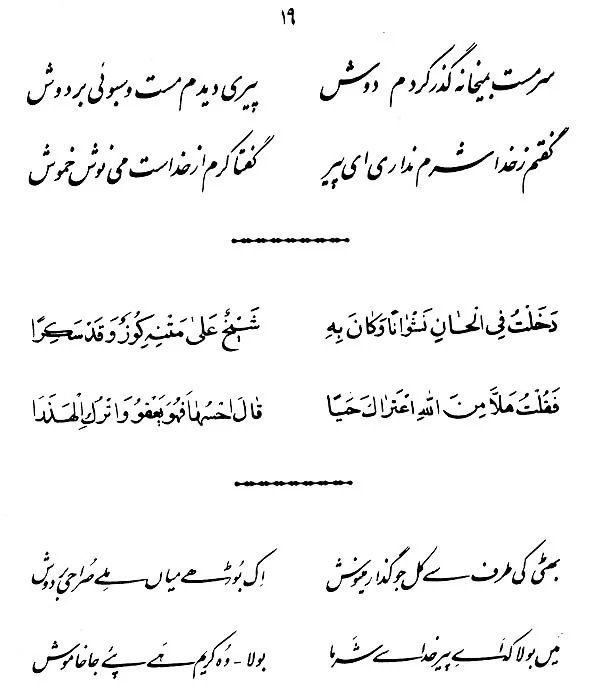 ۱۹
سرمست بمیخانه گذر کردم دوش پیری دیدم مست و سبوئی بر دوش
گفتم ز خدا شرم نداری ای پیر گفتا کرم از خداست می نوش خموش
دَخَلْتُ فِي الْحَانِ نَشْوَانًا وَكَانَ بِهِ شَيْخٌ عَلَىٰ مَتْنِهِ كُوزٌ وَقَدْ سَكِرَا
فَقُلْتُ هَلَّا مِنَ اللهِ اعْتَرَاكَ حَيًا قَالَ احْسُهَا فَهُوَ يَعْفُو وَاتْرُكِ الْهَذَرَا
بھٹی کی طرف سے کل جو گذرا مینوش اِک بُوڑھے میاں ملے صُراحی بردوش
میں بولا کہ اَے پیر خدا سے شرما بولا - وُہ کریم ہَے پئے جا خاموش